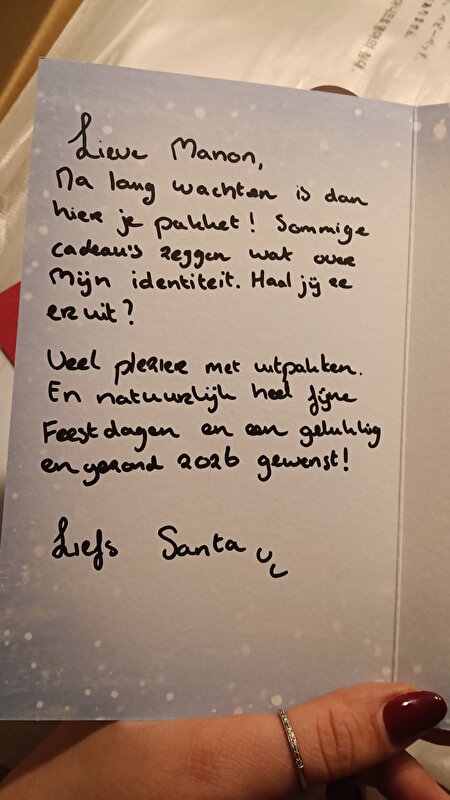 Lieve Manon,
Na lang wachten is dan
hier je pakket! Sommige
cadeau's zeggen wat over
Mijn identiteit. Haal jij ze
er uit?
Veel plezier met uitpakken.
En natuurlijk heel fijne
Feestdagen en een gelukkig
en gezond 2026 gewenst!
Liefs Santa